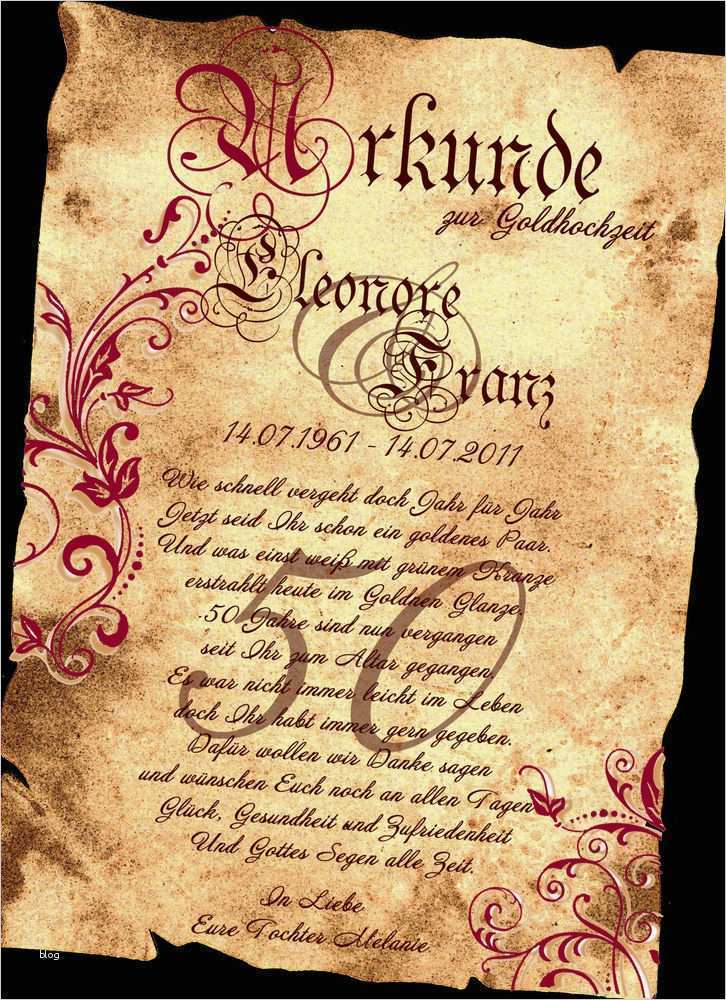 Urkunde
zur Goldhochzeit
Eleonore
&
Franz
14.07.1961 - 14.07.2011
50
Wie schnell vergeht doch Jahr für Jahr
Jetzt seid Ihr schon ein goldenes Paar.
Und was einst weiß mit grünem Kranze
erstrahlt heute im Goldnen Glanze.
50 Jahre sind nun vergangen
seit Ihr zum Altar gegangen.
Es war nicht immer leicht im Leben
doch Ihr habt immer gern gegeben.
Dafür wollen wir Danke sagen
und wünschen Euch noch an allen Tagen
Glück, Gesundheit und Zufriedenheit
Und Gottes Segen alle Zeit.
In Liebe
Eure Tochter Melanie
blog